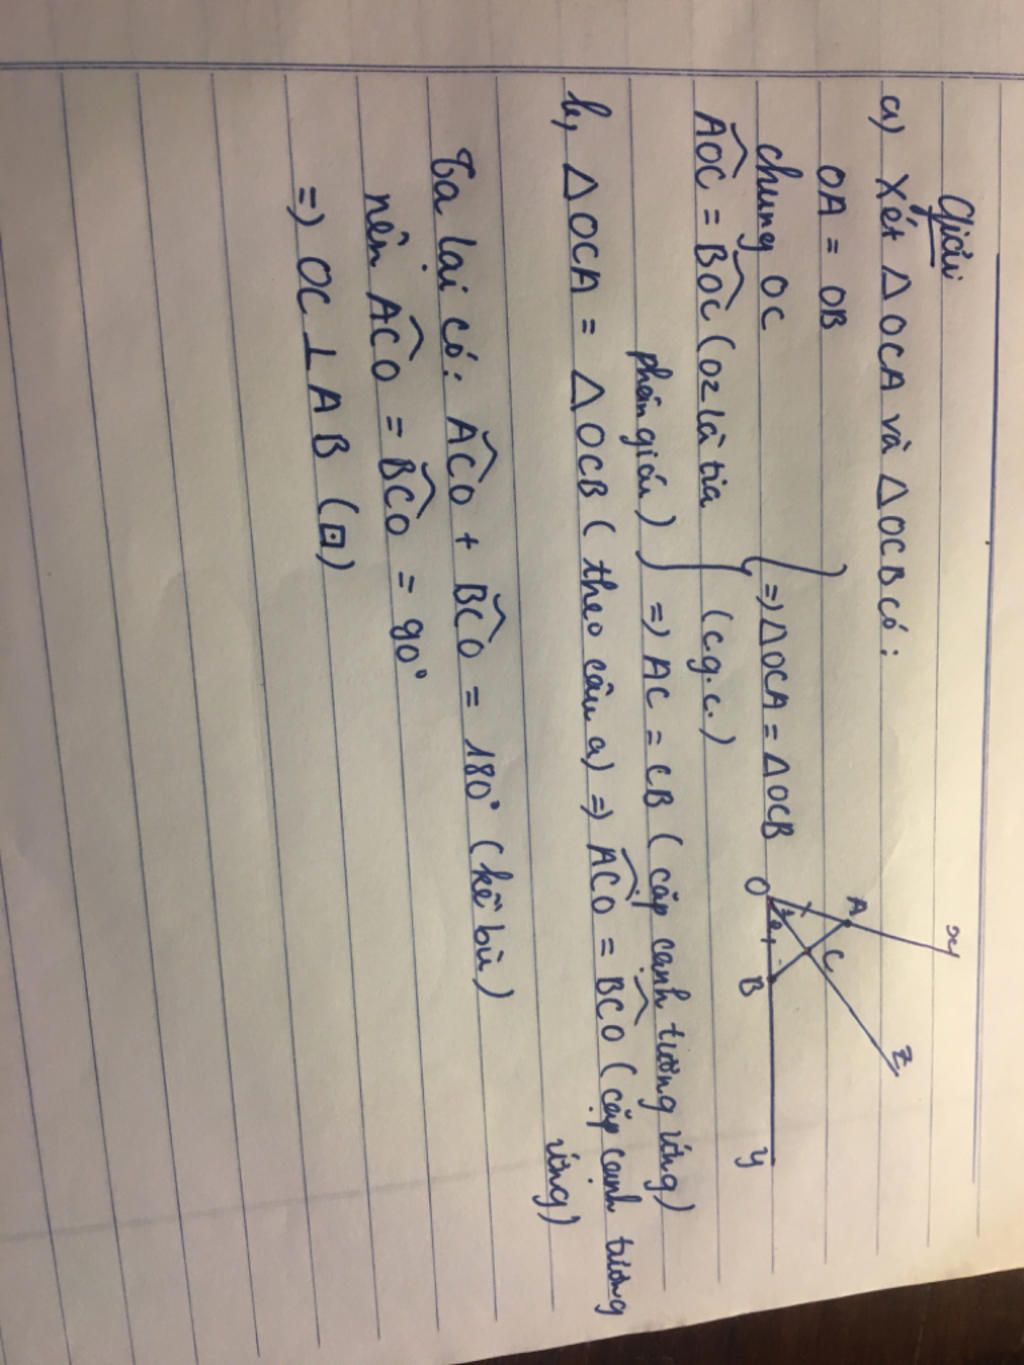 Giải
a) Xét △OCA và △OCB có:
OA = OB
chung OC
=) △OCA = △OCB
AOC = BOC (oz là tia
(c.g.c.)
phân giác)
=) AC = CB (cặp cạnh tương ứng)
b, △OCA = △OCB (theo câu a) =) ACO = BCO (cặp cạnh tương
ứng)
Ta lại có: ACO + BCO = 180° (kề bù)
nên ACO = BCO = 90°
=) OC ⊥ AB (⊡)
x
A
z
C
O
B
y